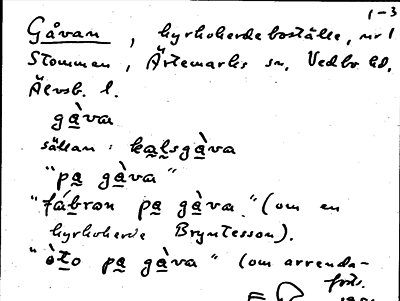 1-3
Gåvan, kyrkoherdeboställe, nr 1
Stommen, Ärtemarks sn, Vedbo hd,
Älvsb. l.
gàva
sällan: kalsgàva
"pa gàva"
"fábron pa gàva." (om en
kyrkoherde Bryntesson).
"òto pa gàva" (om arrenda-
forts.